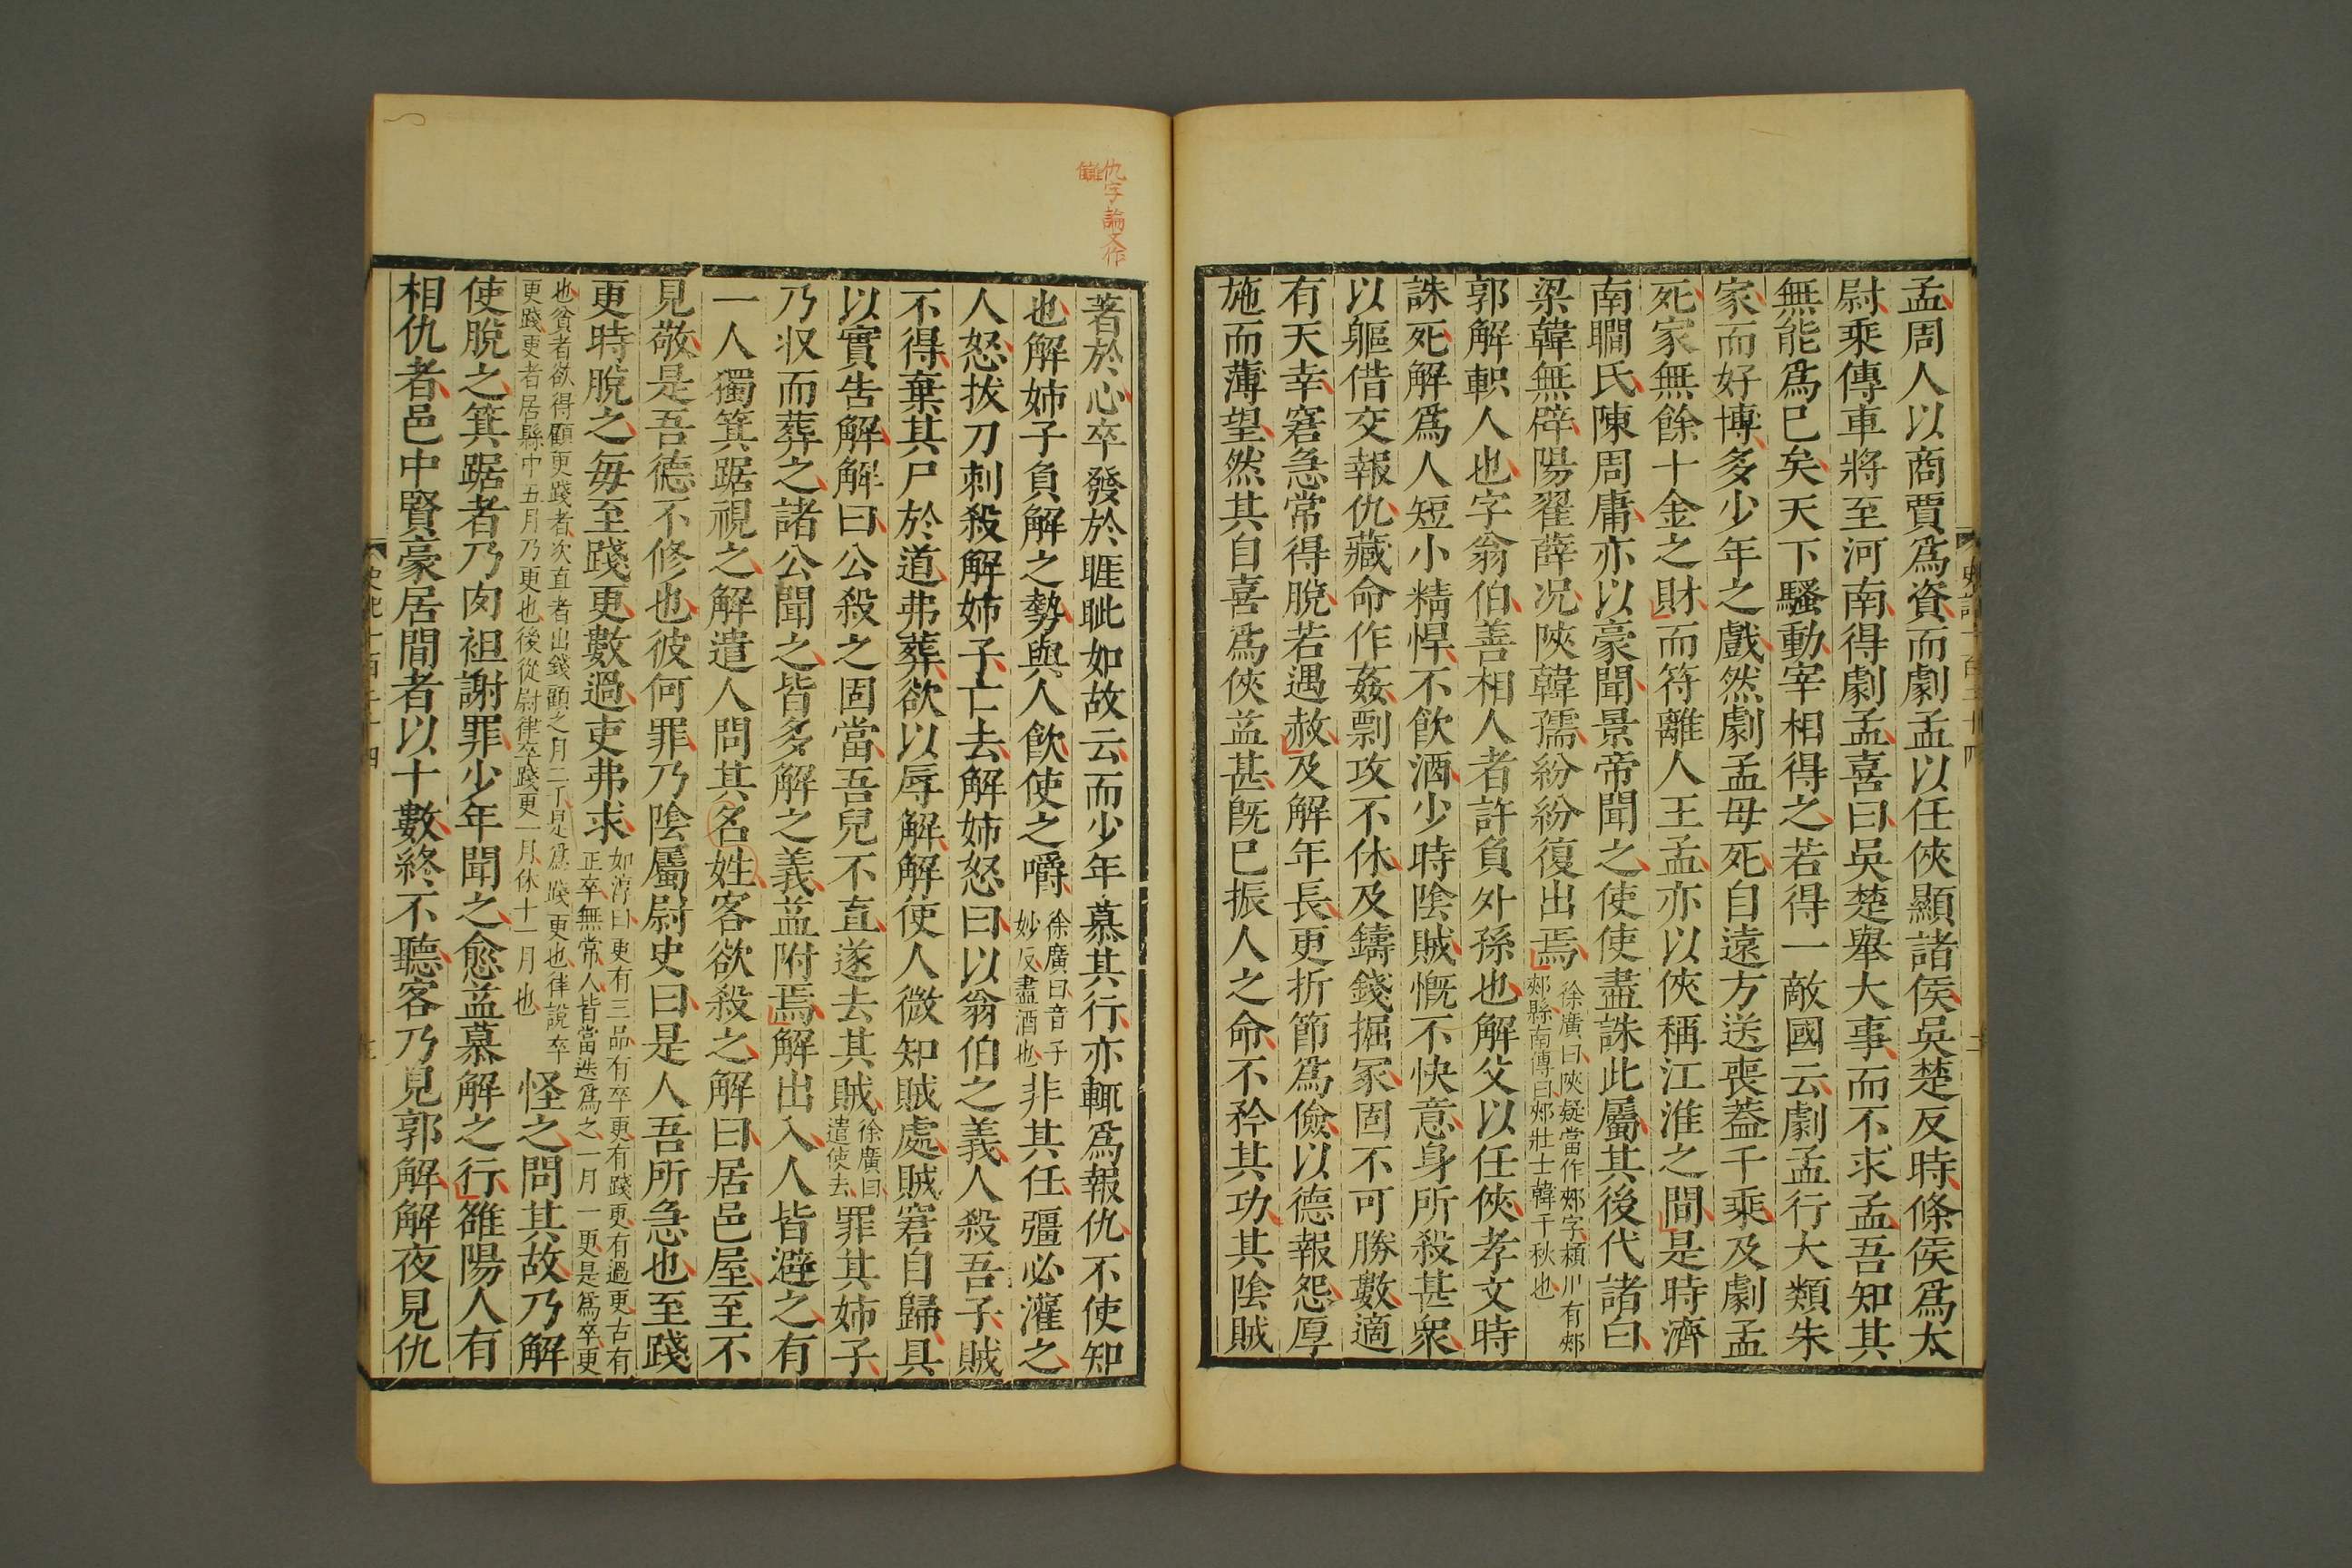 孟周人以商賈爲資而劇孟以任俠顯諸侯吳楚反時條侯爲太
尉乘傳車將至河南得劇孟喜曰吳楚舉大事而不求孟吾知其
無能爲已矣天下騷動宰相得之若得一敵國云劇孟行大類朱
家而好博多少年之戲然劇孟母死自遠方送喪葢千乘及劇孟
死家無餘十金之財而符離人王孟亦以俠稱江淮之間是時濟
南瞷氏陳周庸亦以豪聞景帝聞之使使盡誅此屬其後代諸白
梁韓無辟陽翟薛况陝韓孺紛紛復出焉
徐廣曰陝疑當作郟字潁川有郟
郟縣南傳曰郟壯士韓千秋也
郭解軹人也字翁伯善相人者許負外孫也解父以任俠孝文時
誅死解爲人短小精悍不飲酒少時陰賊慨不快意身所殺甚衆
以軀借交報仇藏命作姦剽攻不休及鑄錢掘冢固不可勝數適
有天幸窘急常得脫若遇赦及解年長更折節爲儉以德報怨厚
施而薄望然其自喜爲俠益甚旣已振人之命不矜其功其陰賊
仇字論文作
讎
著於心卒發於睚眦如故云而少年慕其行亦輒爲報仇不使知
也解姉子負解之勢與人飲使之嚼
徐廣曰音子
妙反盡酒也
非其任彊必灌之
人怒拔刀刺殺解姉子亡去解姉怒曰以翁伯之義人殺吾子賊
不得棄其尸於道弗葬欲以辱解解使人微知賊處賊窘自歸具
以實告解解曰公殺之固當吾兒不直遂去其賊
徐廣曰
遣使去
罪其姉子
乃収而葬之諸公聞之皆多解之義益附焉解出入人皆避之有
一人獨箕踞視之解遣人問其名姓客欲殺之解曰居邑屋至不
見敬是吾德不修也彼何罪乃陰屬尉史曰是人吾所急也至踐
更時脫之每至踐更數過吏弗求
如淳曰更有三品有卒更有踐更有過更古有
正卒無常人皆當迭爲之一月一更是爲卒更
也貧者欲得顧更踐者次直者出錢顧之月二千是爲踐更也律說卒
更踐更者居縣中五月乃更也後從尉律卒踐更一月休十一月也
怪之問其故乃解
使脫之箕踞者乃肉袒謝罪少年聞之愈益慕解之行雒陽人有
相仇者邑中賢豪居間者以十數終不聽客乃見郭解解夜見仇